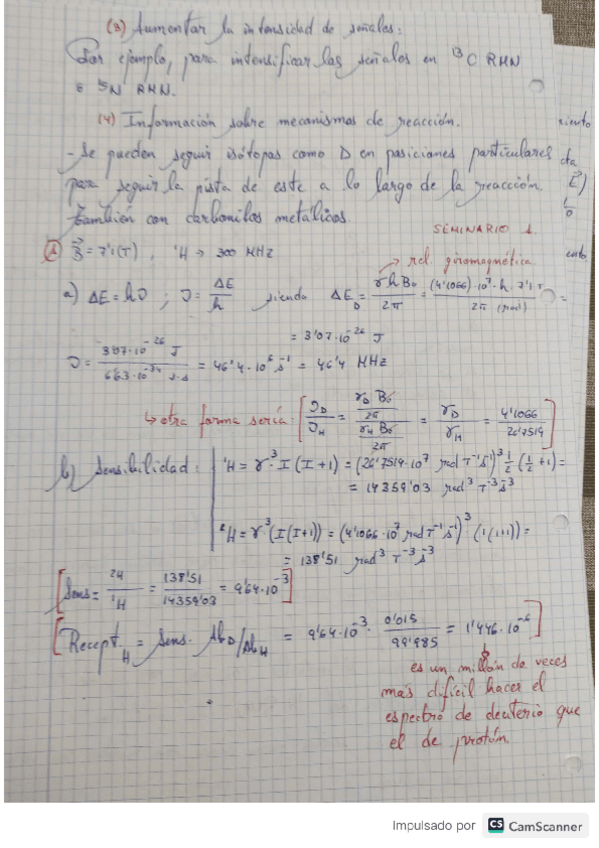 (3) Aumentar la intensidad de señales:
Por ejemplo, para intensificar las señales en ¹³C RMN
o ¹⁵N RMN.
(4) Información sobre mecanismos de reacción.
- Se pueden seguir isótopos como D en posiciones particulares
para seguir la pista de este a lo largo de la reacción.
También con carbonilos metálicos.
SEMINARIO 1.
B⃗ = 7'1 (T) ; ¹H → 300 MHz
→ rel. giromagnética
a) ΔE = hν ; ν = ΔE/h siendo ΔE_D = γhB₀/2π = (4'1066)·10⁷·h·7'1 T/2π (rad) =
= 3'07·10⁻²⁶ J
ν = 3'07·10⁻²⁶ J/6'63·10⁻³⁴ J·s = 46'4·10⁶ s⁻¹ = 46'4 MHz
↳ otra forma sería: [ν_D/ν_H = (γ_D B₀/2π)/(γ_H B₀/2π) = γ_D/γ_H = 4'1066/26'7519]
b) Sensibilidad: ¹H = γ³·I(I+1) = (26'7519·10⁷ rad T⁻¹s⁻¹)³ ½ (½+1) =
= 14359'03 rad³ T⁻³ s⁻³
²H = γ³(I(I+1)) = (4'1066·10⁷ rad T⁻¹s⁻¹)³ (1(1+1)) =
= 138'51 rad³ T⁻³ s⁻³
[Sens = ²H/¹H = 138'51/14359'03 = 9'64·10⁻³]
[Recept_H = Sens. Ab_D/Ab_H = 9'64·10⁻³ · 0'015/99'985 = 1'446·10⁻⁶]
es un millón de veces
más difícil hacer el
espectro de deuterio que
el de protón.
Impulsado por CS CamScanner